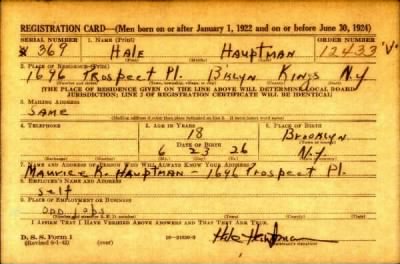 REGISTRATION CARD—(Men born on or after January 1, 1922 and on or before June 30, 1924)
SERIAL NUMBER 1. NAME (Print) ORDER NUMBER
W 369 HALE HAUPTMAN 12433 "V"
(First) (Middle) (Last)
2. PLACE OF RESIDENCE (Print)
1696 Prospect Pl. B'klyn Kings N.Y
[THE PLACE OF RESIDENCE GIVEN ON THE LINE ABOVE WILL DETERMINE LOCAL BOARD
JURISDICTION; LINE 2 OF REGISTRATION CERTIFICATE WILL BE IDENTICAL]
3. MAILING ADDRESS
SAME
4. TELEPHONE 5. AGE IN YEARS 6. PLACE OF BIRTH
18 Brooklyn
DATE OF BIRTH
6 23 26 N.Y.
7. NAME AND ADDRESS OF PERSON WHO WILL ALWAYS KNOW YOUR ADDRESS
MAURICE R. HAUPTMAN - 1696 Prospect Pl.
8. EMPLOYER'S NAME AND ADDRESS
self
9. PLACE OF EMPLOYMENT OR BUSINESS
odd jobs
I AFFIRM THAT I HAVE VERIFIED ABOVE ANSWERS AND THAT THEY ARE TRUE.
D. S. S. Form 1
(Revised 6-1-42) Hale Hauptman